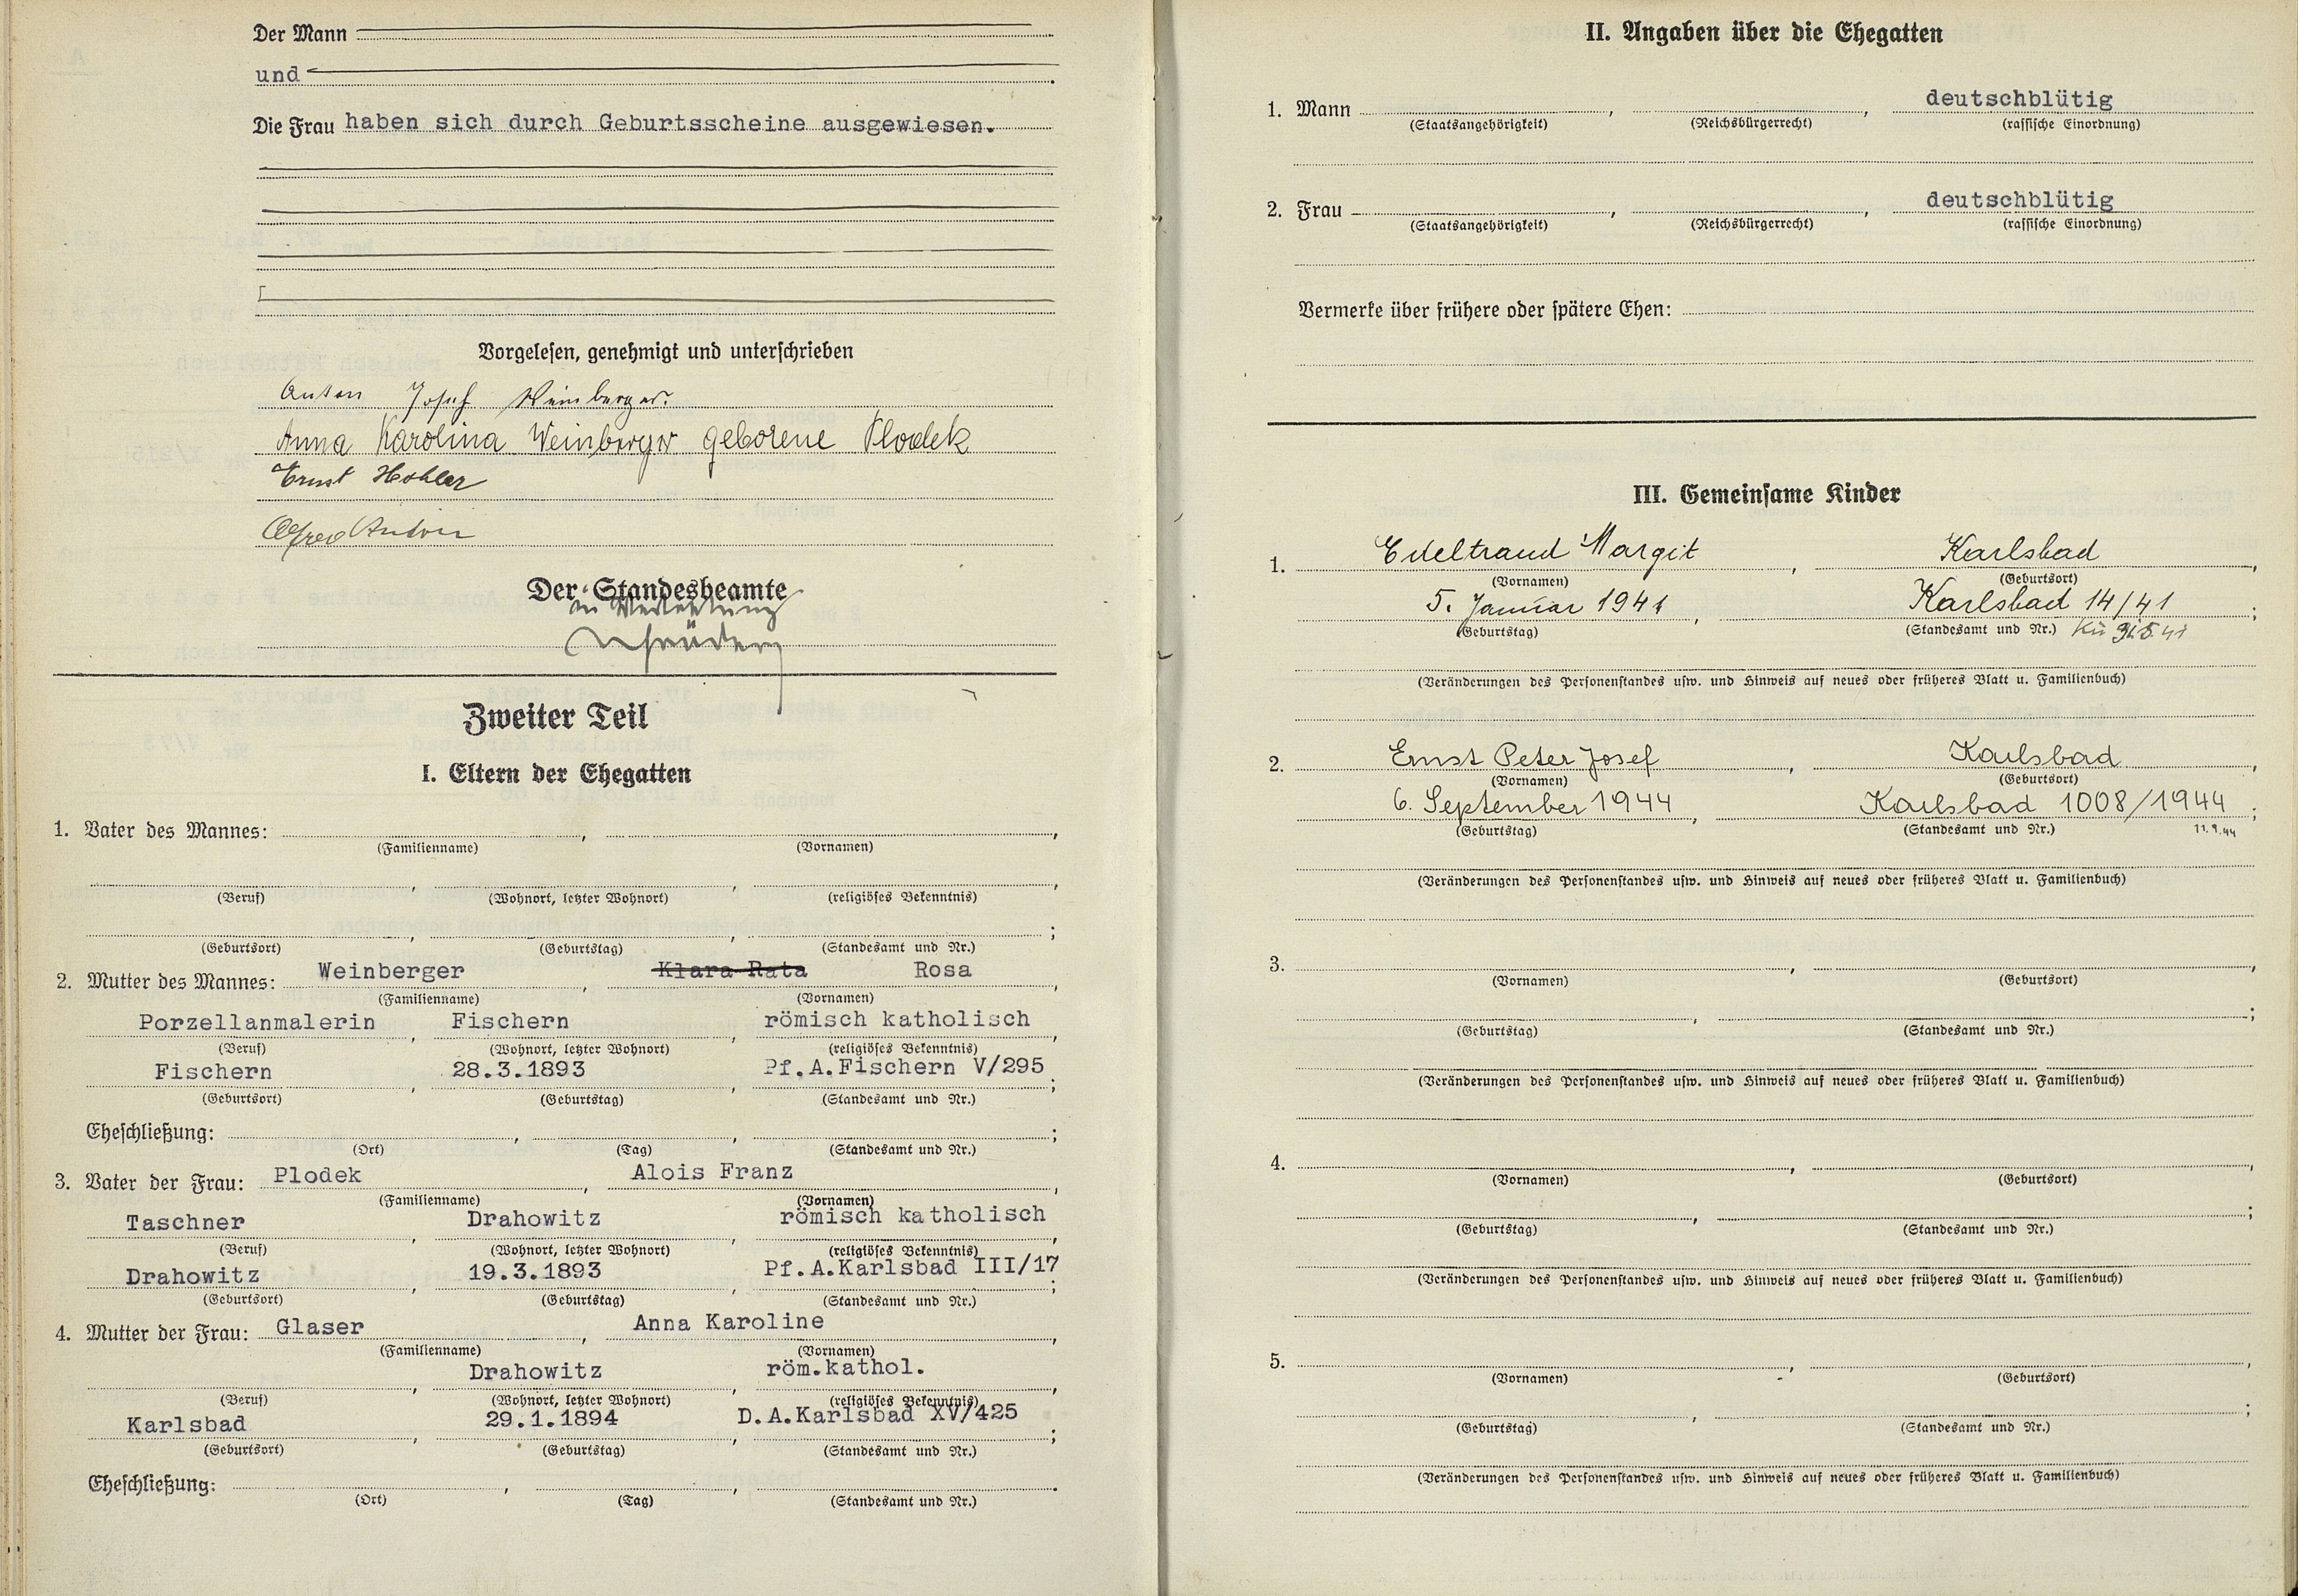 Der Mann
und
Die Frau haben sich durch Geburtsscheine ausgewiesen.
Vorgelesen, genehmigt und unterschrieben
Anton Josef Weinberger.
Anna Karolina Weinberger geborene Plodek
Ernst Hohler
Alfred Anton
Der Standesbeamte
in Vertretung
Zweiter Teil
I. Eltern der Ehegatten
1. Vater des Mannes: , ,
(Familienname) (Vornamen)
(Beruf) (Wohnort, letzter Wohnort) (religiöses Bekenntnis)
(Geburtsort) (Geburtstag) (Standesamt und Nr.)
2. Mutter des Mannes: Weinberger, Klara Rata Rosa,
(Familienname) (Vornamen)
Porzellanmalerin, Fischern, römisch katholisch,
(Beruf) (Wohnort, letzter Wohnort) (religiöses Bekenntnis)
Fischern, 28.3.1893, Pf.A.Fischern V/295;
(Geburtsort) (Geburtstag) (Standesamt und Nr.)
Eheschließung: , , ;
(Ort) (Tag) (Standesamt und Nr.)
3. Vater der Frau: Plodek, Alois Franz,
(Familienname) (Vornamen)
Taschner, Drahowitz, römisch katholisch,
(Beruf) (Wohnort, letzter Wohnort) (religiöses Bekenntnis)
Drahowitz, 19.3.1893, Pf.A.Karlsbad III/17;
(Geburtsort) (Geburtstag) (Standesamt und Nr.)
4. Mutter der Frau: Glaser, Anna Karoline,
(Familienname) (Vornamen)
, Drahowitz, röm.kathol.,
(Beruf) (Wohnort, letzter Wohnort) (religiöses Bekenntnis)
Karlsbad, 29.1.1894, D.A.Karlsbad XV/425;
(Geburtsort) (Geburtstag) (Standesamt und Nr.)
Eheschließung: , , .
(Ort) (Tag) (Standesamt und Nr.)
II. Angaben über die Ehegatten
1. Mann , , deutschblütig
(Staatsangehörigkeit) (Reichsbürgerrecht) (rassische Einordnung)
2. Frau , , deutschblütig
(Staatsangehörigkeit) (Reichsbürgerrecht) (rassische Einordnung)
Vermerke über frühere oder spätere Ehen:
III. Gemeinsame Kinder
1. Edeltraud Margit, Karlsbad,
(Vornamen) (Geburtsort)
5. Januar 1941, Karlsbad 14/41;
(Geburtstag) (Standesamt und Nr.)
(Veränderungen des Personenstandes usw. und Hinweis auf neues oder früheres Blatt u. Familienbuch)
2. Ernst Peter Josef, Karlsbad,
(Vornamen) (Geburtsort)
6. September 1944, Karlsbad 1008/1944;
(Geburtstag) (Standesamt und Nr.) 11.9.44
(Veränderungen des Personenstandes usw. und Hinweis auf neues oder früheres Blatt u. Familienbuch)
3. , ,
(Vornamen) (Geburtsort)
(Geburtstag) (Standesamt und Nr.)
(Veränderungen des Personenstandes usw. und Hinweis auf neues oder früheres Blatt u. Familienbuch)
4. , ,
(Vornamen) (Geburtsort)
(Geburtstag) (Standesamt und Nr.)
(Veränderungen des Personenstandes usw. und Hinweis auf neues oder früheres Blatt u. Familienbuch)
5. , ,
(Vornamen) (Geburtsort)
(Geburtstag) (Standesamt und Nr.)
(Veränderungen des Personenstandes usw. und Hinweis auf neues oder früheres Blatt u. Familienbuch)